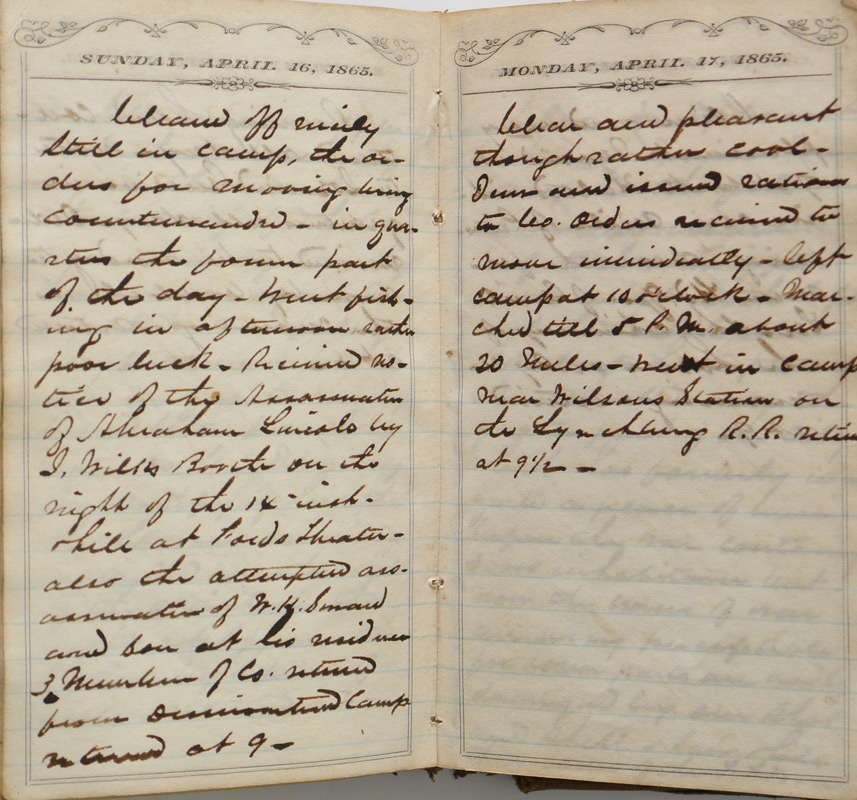 SUNDAY, APRIL 16, 1865.
Cleared off nicely
Still in camp, the or-
ders for moving being
countermanded - in quar-
ters the forenn part
of the day - Went fish-
ing in afternoon rather
poor luck - Recieved no-
tice of the Assassination
of Abraham Lincoln by
J. Wilkes Booth on the
night of the 14" inst.
while at Fords Theater -
also the attempted ass-
assination of W. H. Seward
and son at his residence
3 Members of Co. returned
from Dismounted Camp
retired at 9 -
MONDAY, APRIL 17, 1865.
Clear and pleasant
though rather cool -
Drew and issued rations
to Co. Orders recieved to
move immediately - left
camp at 10 o'clock - Mar-
ched till 5 P.M. about
20 Miles - went in camp
near Wilsons Station on
the Lynchburg R.R. retired
at 9 1/2 -